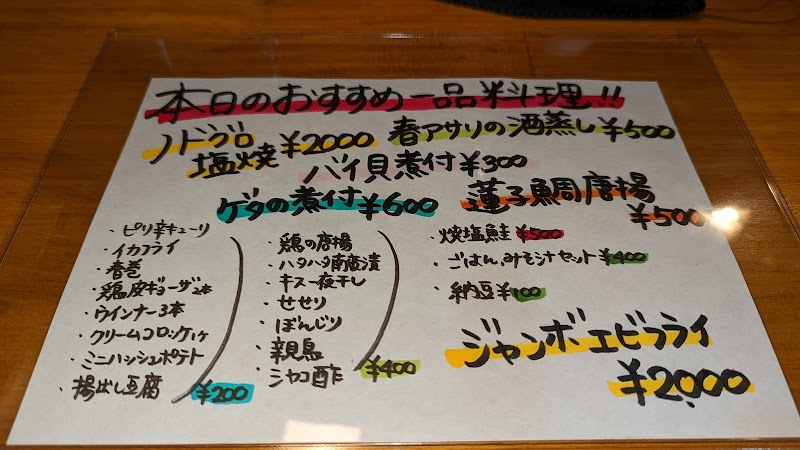 本日のおすすめ一品料理!!
ノドグロ塩焼 ¥2000
春アサリの酒蒸し ¥500
バイ貝煮付 ¥300
ゲタの煮付 ¥600
蓮子鯛唐揚 ¥500
・ピリ辛キューリ
・イカフライ
・春巻
・鶏皮ギョーザ2本
・ウインナー3本
・クリームコロッケ1ヶ
・ミニハッシュポテト
・揚出し豆腐
¥200
・鶏の唐揚
・ハタハタ南蛮漬
・キス一夜干し
・せせり
・ぼんじり
・親鳥
・シャコ酢
¥400
・焼塩鮭 ¥500
・ごはん、みそ汁セット ¥400
・納豆 ¥100
ジャンボエビフライ
¥2000